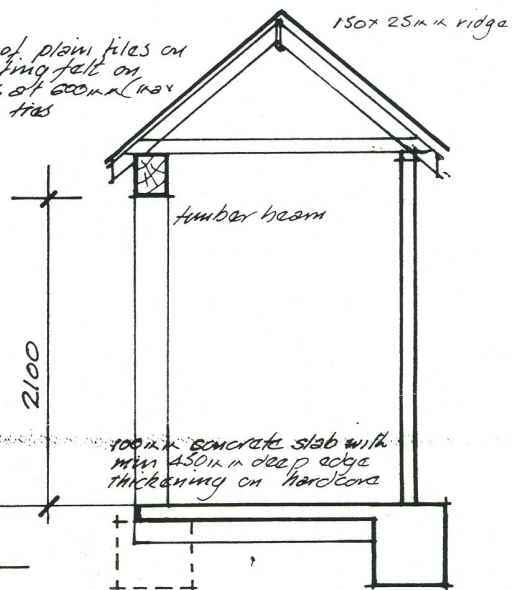 150x 25mm ridge
of plain tiles on
ting felt on
s at 600mm (max
ties
timber beam
2100
100mm concrete slab with
min 450mm deep edge
thickening on hardcore